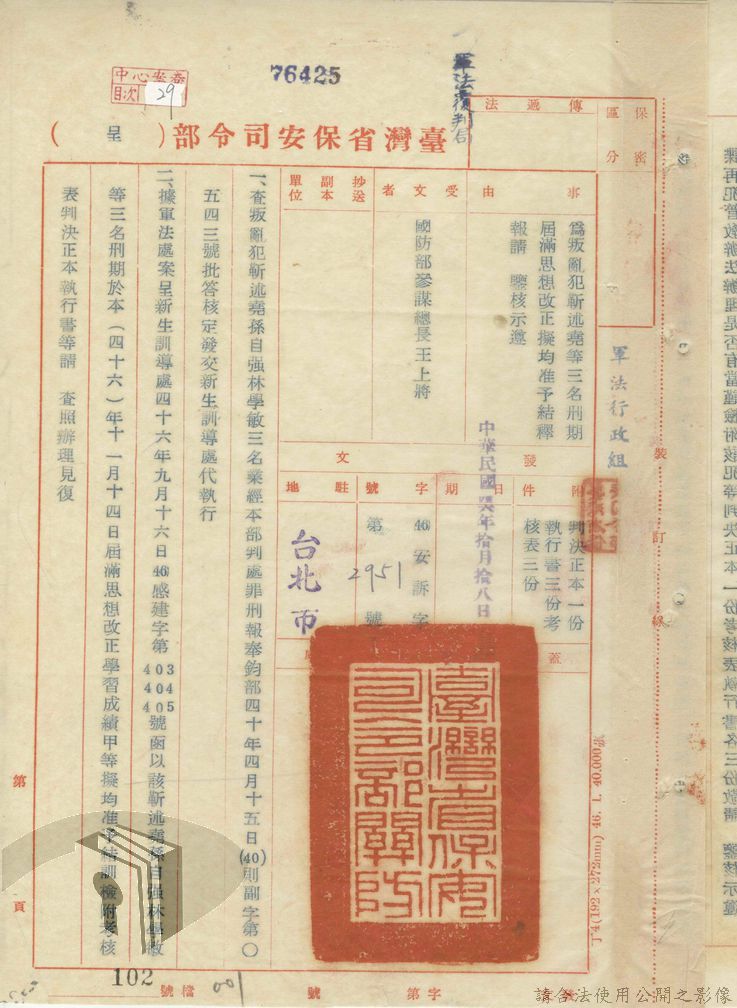 76425
中心檔案
目次 29
軍法覆判局
臺灣省保安司令部（呈）
保密區分
傳遞法
軍法行政組
裝訂線
事由
為叛亂犯靳述堯等三名刑期
屆滿思想改正擬均准予結釋
報請　鑒核示遵
受文者
國防部參謀總長王上將
抄送副本單位
附件
判決正本一份
執行書三份考
核表二份
發文
日期
中華民國四六年拾月拾八日
字號
46安訴字
第2951號
駐地
台北市
蓋
臺灣省保安司令部關防
一、查叛亂犯靳述堯孫自强林學敏三名業經本部判處罪刑報奉鈞部四十年四月十五日(40)則副字第〇
五四三號批答核定發交新生訓導處代執行
二、據軍法處案呈新生訓導處四十六年九月十六日46感建字第403 404 405號函以該靳述堯孫自强林學敏
等三名刑期於本（四十六）年十一月十四日屆滿思想改正學習成績甲等擬均准予結訓檢附考核
表判決正本執行書等請　查照辦理見復
J.4(192×272mm) 46. 1. 40.000
第　頁
102
檔號
001
字第　號
請合法使用公開之影像